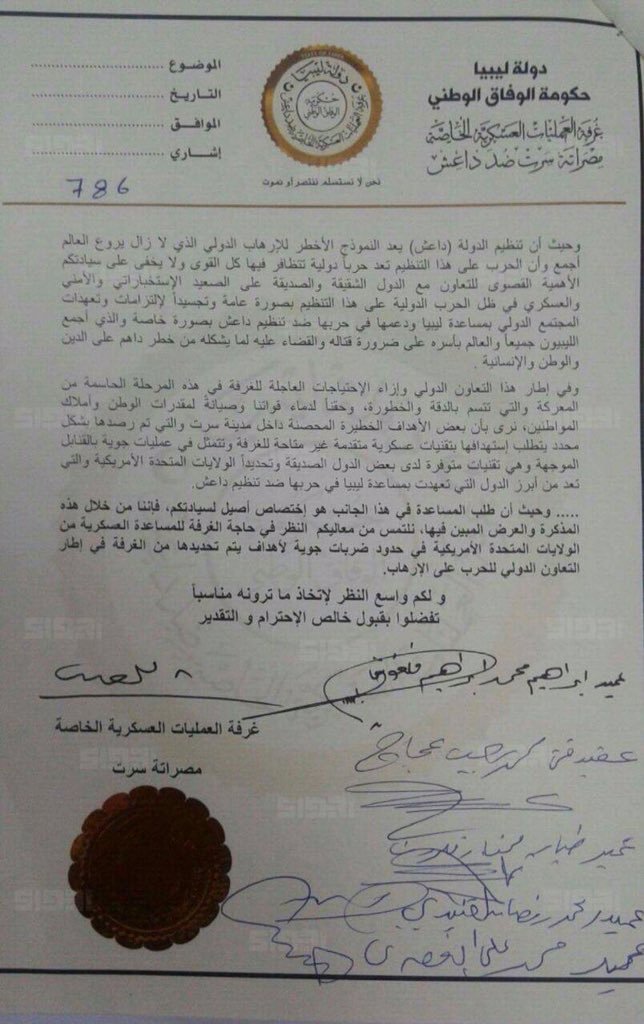 دولة ليبيا
حكومة الوفاق الوطني
غرفة العمليات العسكرية الخاصة
مصراتة سرت ضد داعش
دولة ليبيا
حكومة الوفاق الوطني
نحن لا نستسلم ننتصر أو نموت
الموضوع
التاريخ
الموافق
إشاري
786
وحيث أن تنظيم الدولة (داعش) يعد النموذج الأخطر للإرهاب الدولي الذي لا زال يروع العالم
أجمع وأن الحرب على هذا التنظيم تعد حرباً دولية تتظافر فيها كل القوى ولا يخفى على سيادتكم
الأهمية القصوى للتعاون مع الدول الشقيقة والصديقة على الصعيد الإستخباراتي والأمني
والعسكري في ظل الحرب الدولية على هذا التنظيم بصورة عامة وتجسيداً لإلتزامات وتعهدات
المجتمع الدولي بمساعدة ليبيا ودعمها في حربها ضد تنظيم داعش بصورة خاصة والذي أجمع
الليبيون جميعاً والعالم بأسره على ضرورة قتاله والقضاء عليه لما يشكله من خطر داهم على الدين
والوطن والإنسانية .
وفي إطار هذا التعاون الدولي وإزاء الإحتياجات العاجلة للغرفة في هذه المرحلة الحاسمة من
المعركة والتي تتسم بالدقة والخطورة، وحقناً لدماء قواتنا وصيانةً لمقدرات الوطن وأملاك
المواطنين، نرى بأن بعض الأهداف الخطيرة المحصنة داخل مدينة سرت والتي تم رصدها بشكل
محدد يتطلب إستهدافها بتقنيات عسكرية متقدمة غير متاحة للغرفة وتتمثل في عمليات جوية بالقنابل
الموجهة وهي تقنيات متوفرة لدى بعض الدول الصديقة وتحديداً الولايات المتحدة الأمريكية والتي
تعد من أبرز الدول التي تعهدت بمساعدة ليبيا في حربها ضد تنظيم داعش.
..... وحيث أن طلب المساعدة في هذا الجانب هو إختصاص أصيل لسيادتكم، فإننا من خلال هذه
المذكرة والعرض المبين فيها، نلتمس من معاليكم النظر في حاجة الغرفة للمساعدة العسكرية من
الولايات المتحدة الأمريكية في حدود ضربات جوية لأهداف يتم تحديدها من الغرفة في إطار
التعاون الدولي للحرب على الإرهاب.
و لكم واسع النظر لإتخاذ ما ترونه مناسباً
تفضلوا بقبول خالص الإحترام و التقدير
عميد ابراهيم محمد ابراهيم
غرفة العمليات العسكرية الخاصة
مصراتة سرت
عميد طيار مختار
عميد محمد علي